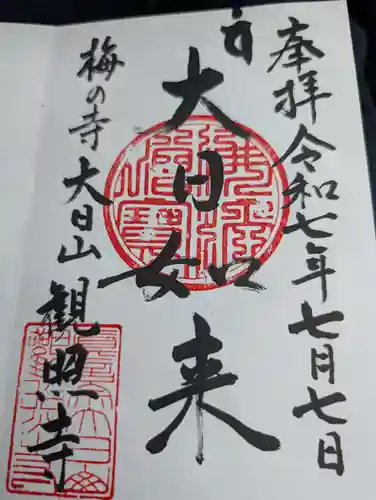 奉拝 令和七年七月七日
大日如来
梅の寺 大日山 観照寺